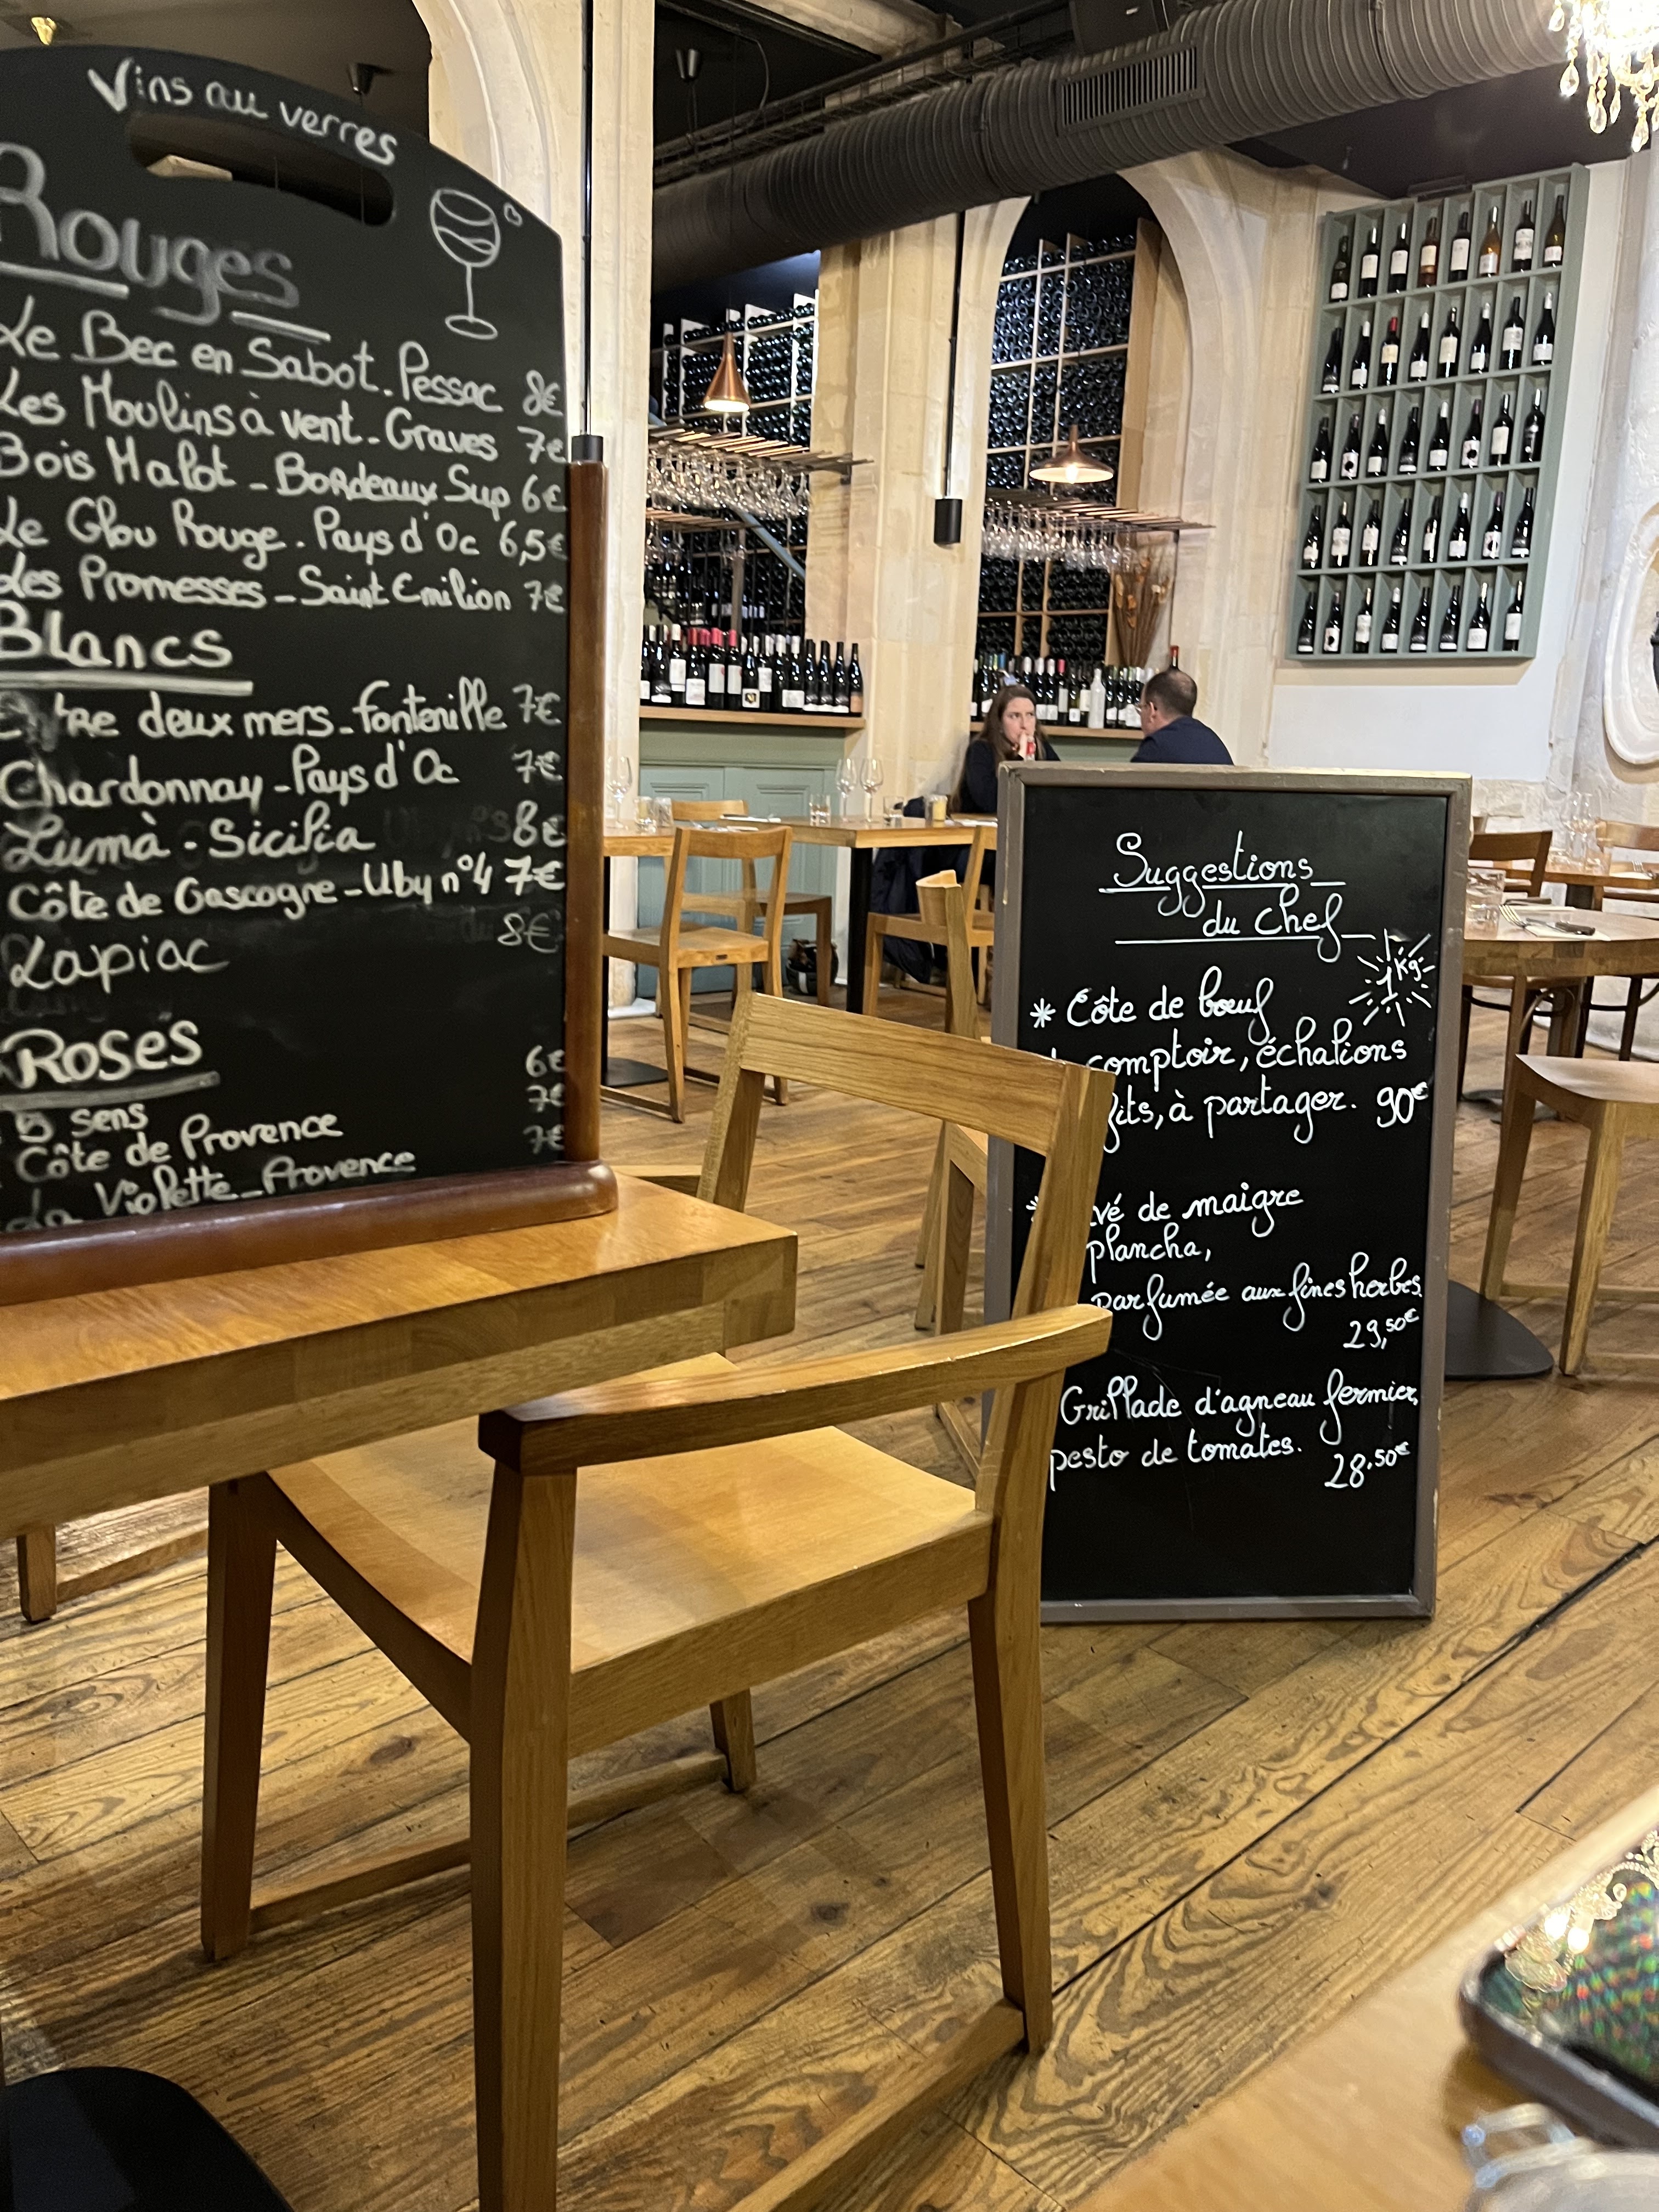 Vins au verres
Rouges
Le Bec en Sabot. Pessac 8€
Les Moulins à vent - Graves 7€
Bois Malot - Bordeaux Sup 6€
Le Glou Rouge. Pays d'Oc 6,5€
Les Promesses - Saint Emilion 7€
Blancs
Entre deux mers - Fontenille 7€
Chardonnay - Pays d'Oc 7€
Lumà - Sicilia 8€
Côte de Gascogne - Uby n°4 7€
Lapiac 8€
Roses
5 sens 6€
Côte de Provence 7€
La Violette - Provence 7€
Suggestions
du chef
1kg
* Côte de bœuf
comptoir, échalions
fits, à partager. 90€
* vé de maigre
plancha,
parfumée aux fines herbes.
29,50€
Grillade d'agneau fermier,
pesto de tomates.
28.50€